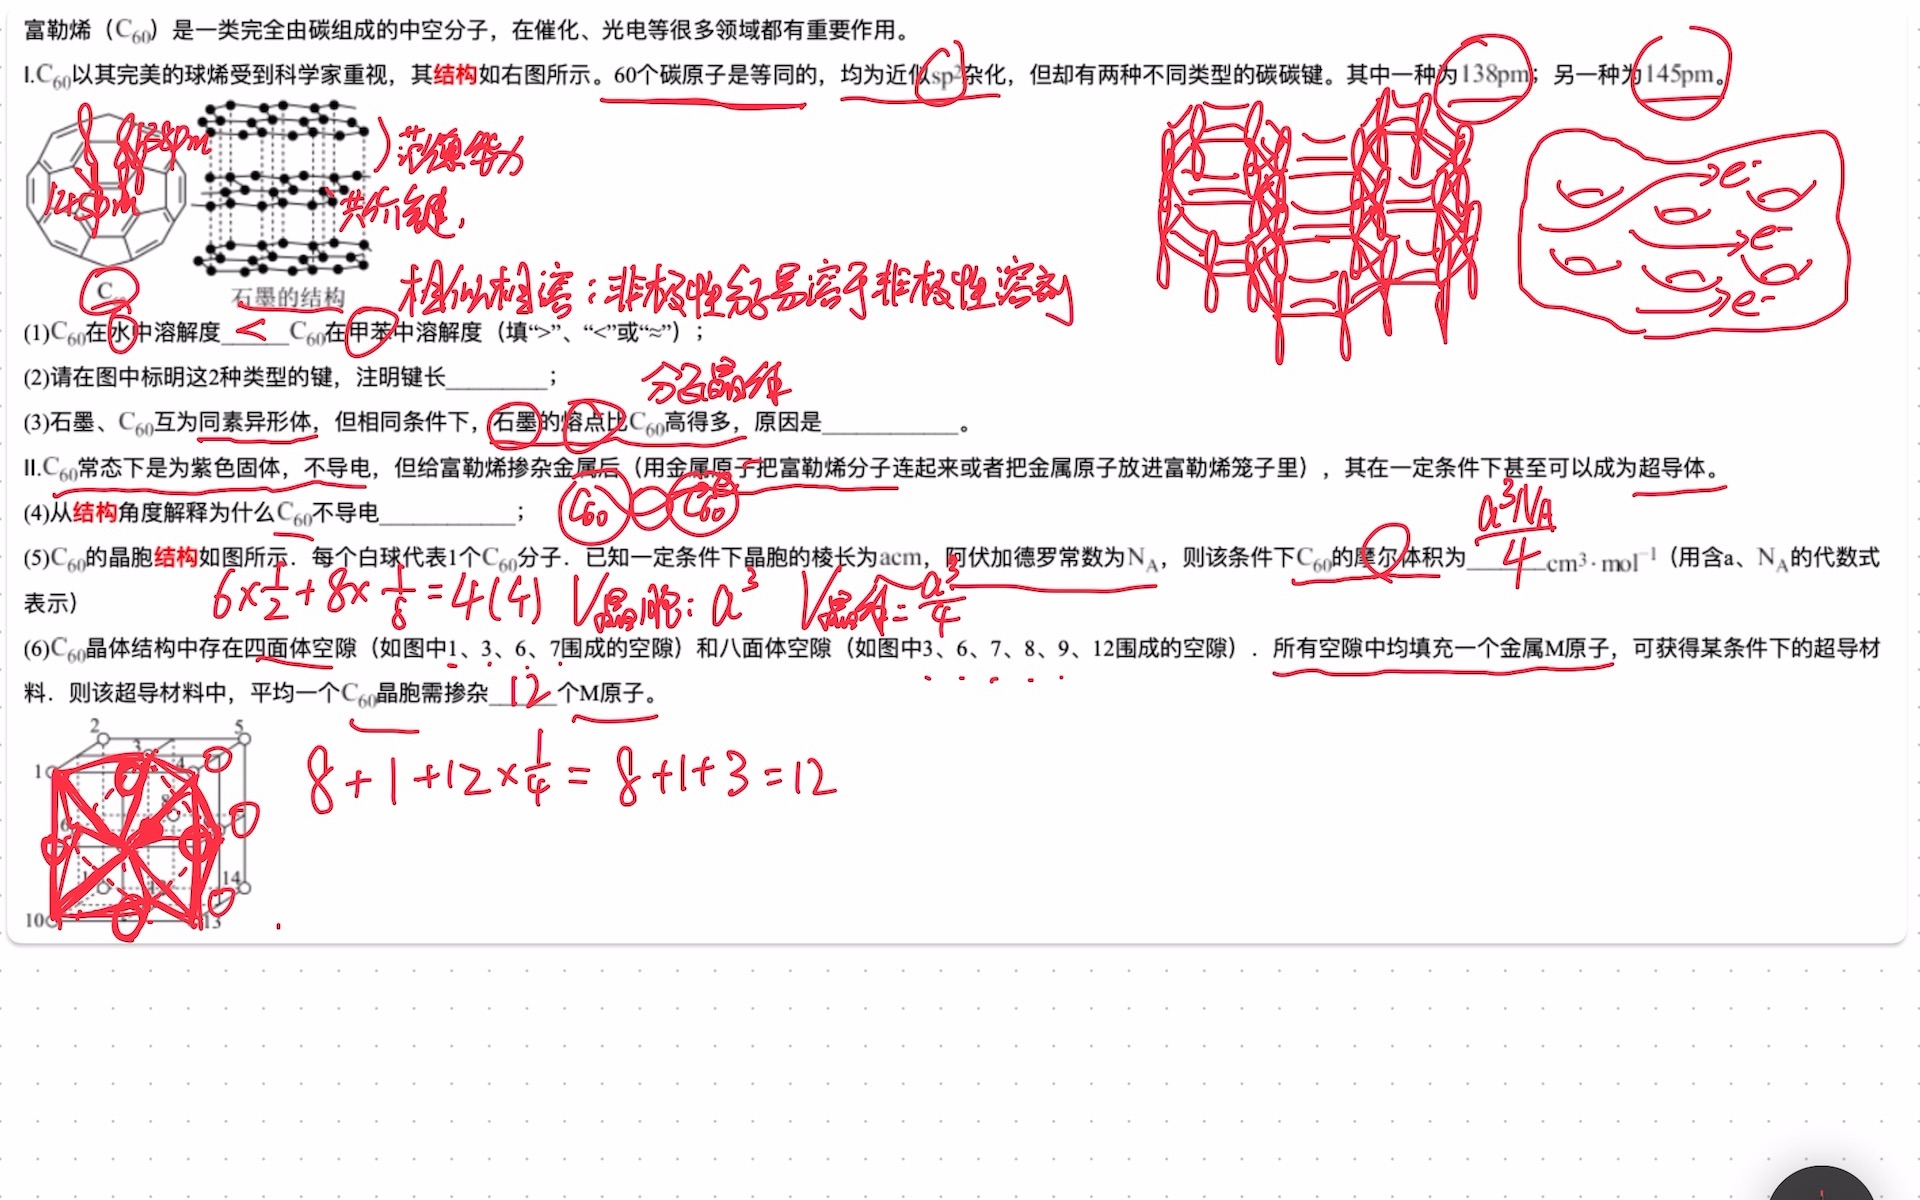 富勒烯（C60）是一类完全由碳组成的中空分子，在催化、光电等很多领域都有重要作用。
I.C60以其完美的球烯受到科学家重视，其结构如右图所示。60个碳原子是等同的，均为近似sp²杂化，但却有两种不同类型的碳碳键。其中一种为138pm；另一种为145pm。
138pm
145pm
范德华力
共价键
e-
e-
e-
C
石墨的结构
相似相溶：非极性分子易溶于非极性溶剂
(1)C60在水中溶解度 < C60在甲苯中溶解度（填“>”、“<”或“≈”）；
(2)请在图中标明这2种类型的键，注明键长________；
分子晶体
(3)石墨、C60互为同素异形体，但相同条件下，石墨的熔点比C60高得多，原因是___________。
II.C60常态下是为紫色固体，不导电，但给富勒烯掺杂金属后（用金属原子把富勒烯分子连起来或者把金属原子放进富勒烯笼子里），其在一定条件下甚至可以成为超导体。
(4)从结构角度解释为什么C60不导电___________；
C60 C60
(5)C60的晶胞结构如图所示．每个白球代表1个C60分子．已知一定条件下晶胞的棱长为acm，阿伏加德罗常数为NA，则该条件下C60的摩尔体积为 a³NA/4 cm³·mol⁻¹（用含a、NA的代数式
表示）
6×1/2+8×1/8=4(个) V晶胞：a³ V晶体=a³/4
(6)C60晶体结构中存在四面体空隙（如图中1、3、6、7围成的空隙）和八面体空隙（如图中3、6、7、8、9、12围成的空隙）．所有空隙中均填充一个金属M原子，可获得某条件下的超导材
料．则该超导材料中，平均一个C60晶胞需掺杂 12 个M原子。
2 5
1 3
6 8
14
10 13
8+1+12×1/4=8+1+3=12